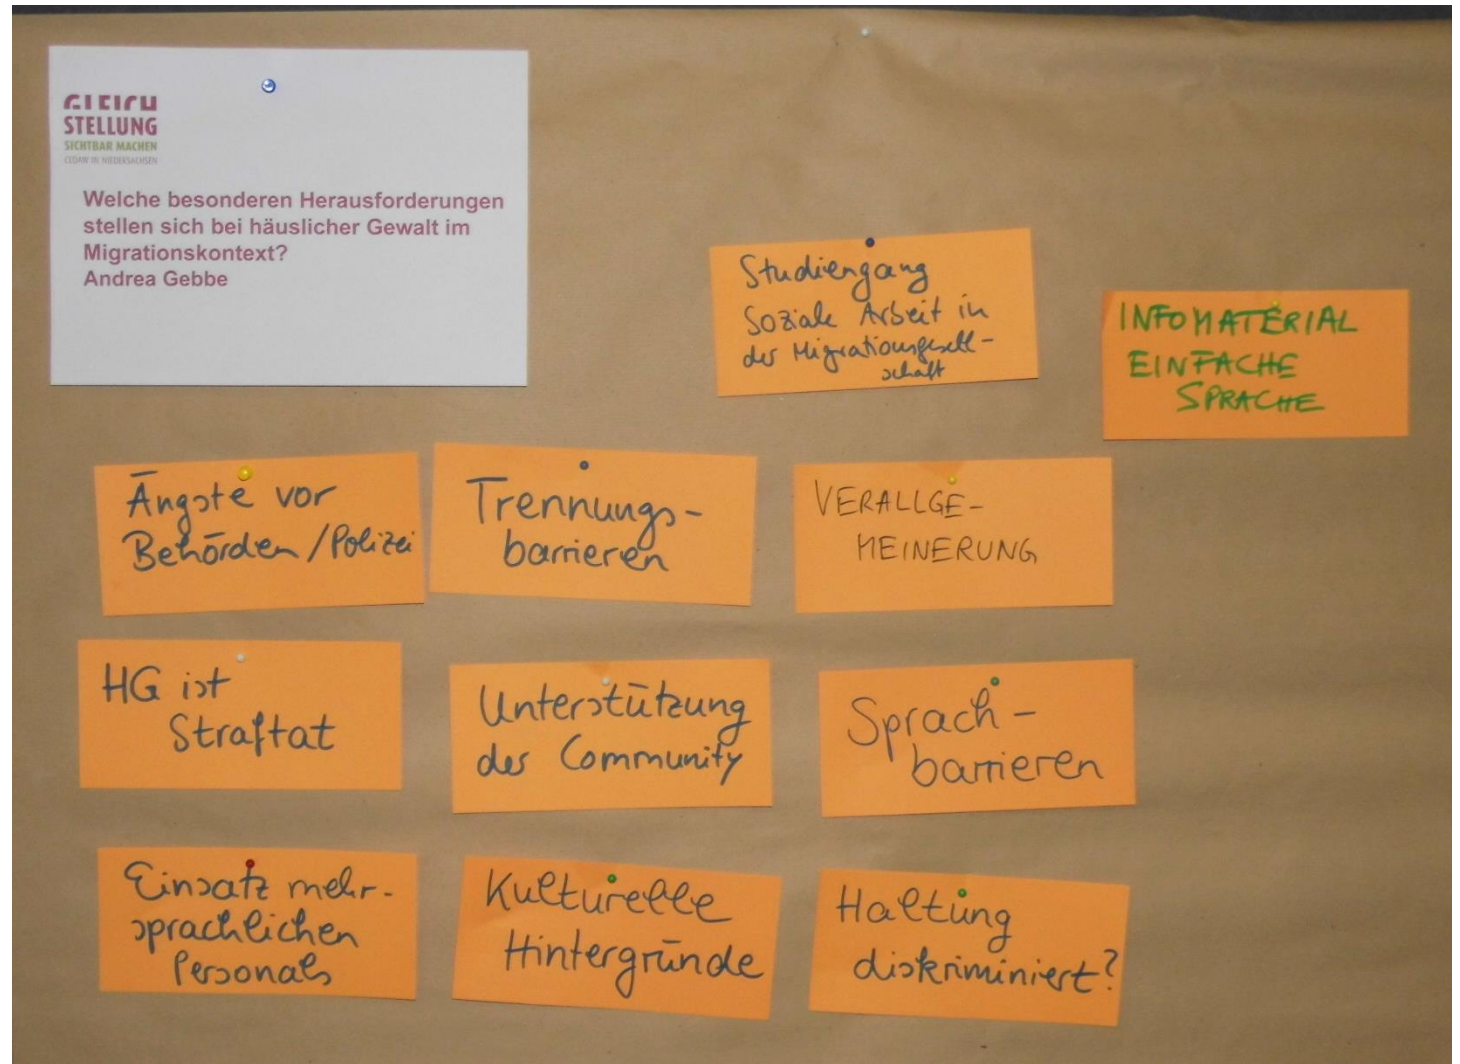 GLEICH
STELLUNG
SICHTBAR MACHEN
CEDAW IN NIEDERSACHSEN
Welche besonderen Herausforderungen
stellen sich bei häuslicher Gewalt im
Migrationskontext?
Andrea Gebbe
Studiengang
Soziale Arbeit in
der Migrationsgesell-
schaft
INFOMATERIAL
EINFACHE
SPRACHE
Ängste vor
Behörden/Polizei
Trennungs-
barrieren
VERALLGE-
MEINERUNG
HG ist
Straftat
Unterstützung
der Community
Sprach-
barrieren
Einsatz mehr-
sprachlichen
Personals
Kulturelle
Hintergründe
Haltung
diskriminiert?